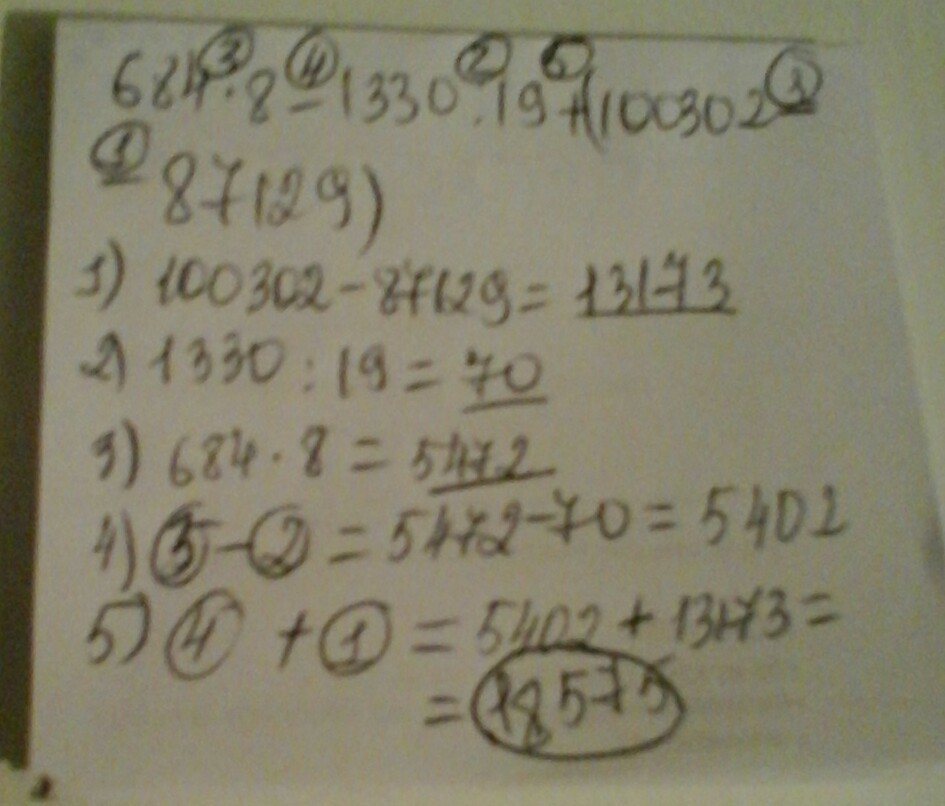 684 ③ · 8 ④ – 1330 ② : 19 ⑤ + (100302 –
① 87129)
1) 100302 - 87129 = 13173
2) 1330 : 19 = 70
3) 684 · 8 = 5472
4) ③ - ② = 5472 - 70 = 5402
5) ④ + ① = 5402 + 13173 =
= 18575